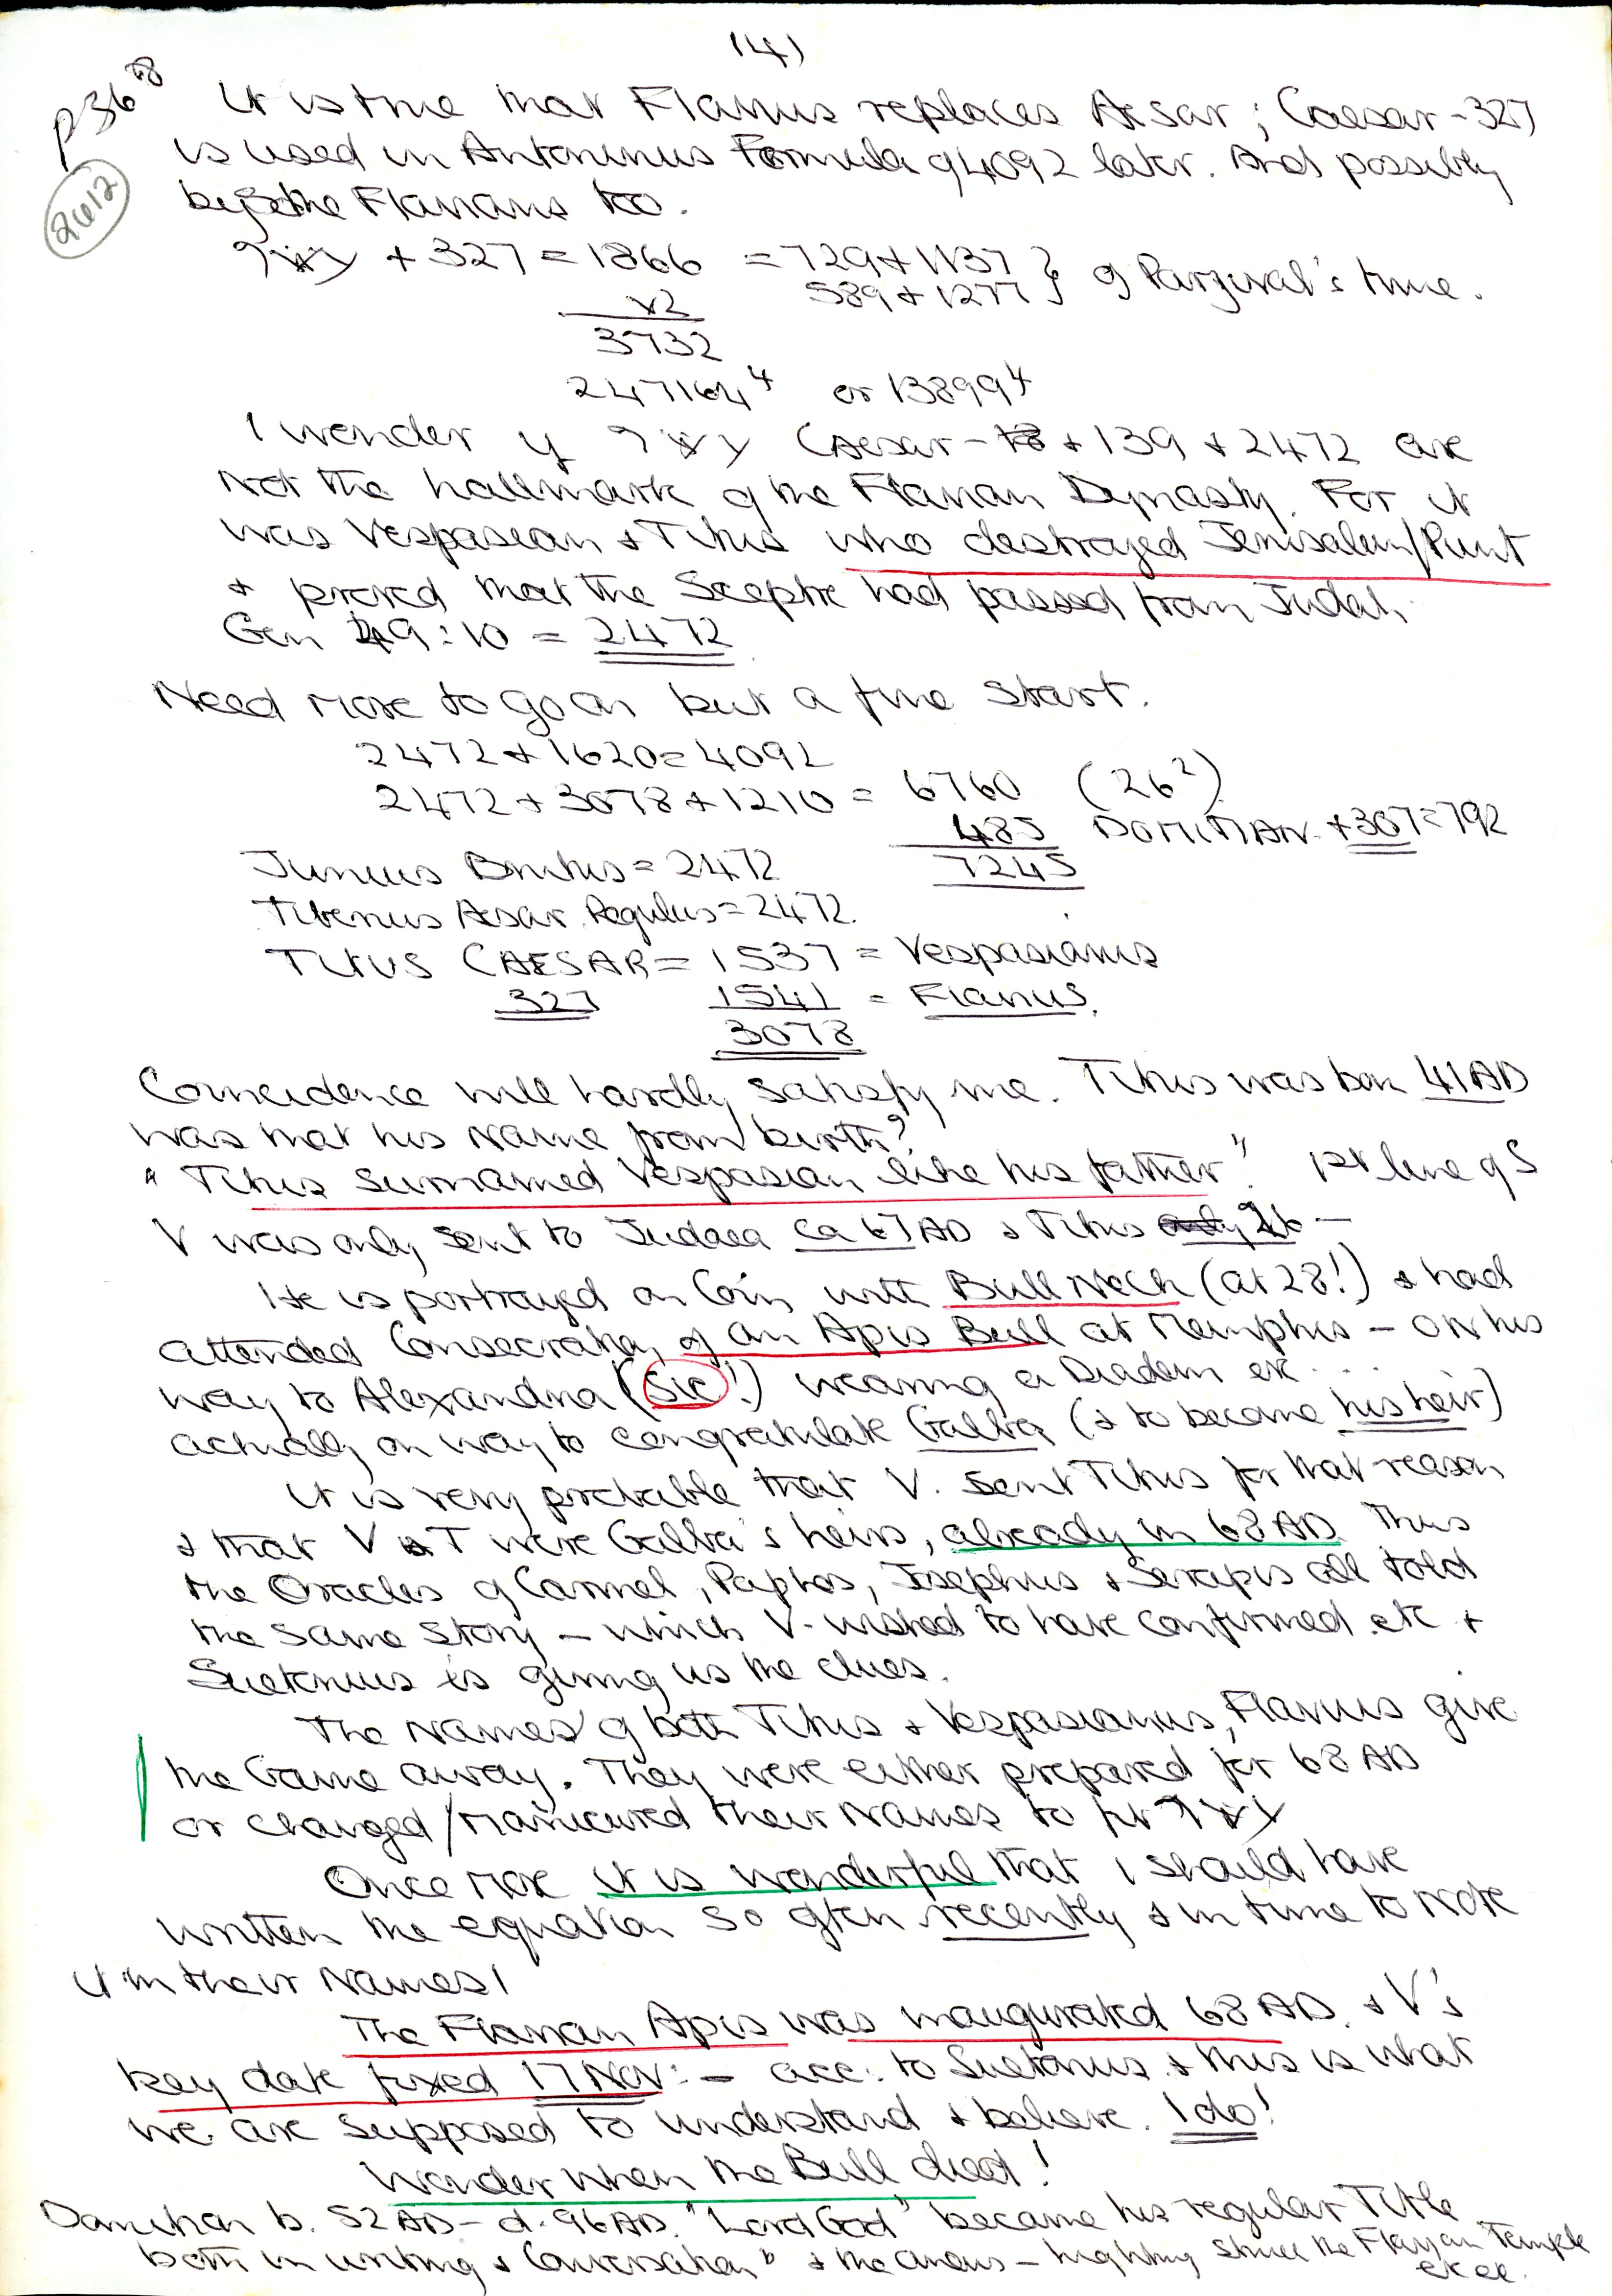 (4)
P 36
2612
It is true that Flavius replaces Aesar; Caesar - 327
is used in Antoninus Formula 94092 later. And possibly
before the Flavians too.
+ 327 = 1866 = 729 + 1137 }
x2 589 + 1277 } of Parzival's time.
3732
247164⁴ or 13899⁴
I wonder if Caesar - + 139 + 2472 are
Not the hallmark of the Flavian Dynasty. For it
was Vespasian + Titus who destroyed Jerusalem/Punt
+ proved that the Sceptre had passed from Judah.
Gen 49:10 = 2472
Need More to go on but a fine start.
2472 + 1620 = 4092
2472 + 3078 + 1210 = 6760 (26²)
485 DOMITIAN. + 307 = 792
7245
Junius Brutus = 2472
Tiberius Aesar Regulus = 2472.
TITUS CAESAR = 1537 = Vespasianus
327 1541 = Flavius.
3078
Coincidence will hardly satisfy me. Titus was born 41 AD
was that his Name from birth?
"Titus surnamed Vespasian like his father" 1st line of S
V was only sent to Judaea ca 67 AD + Titus 26 —
He is portrayed on Coin with Bull Neck (at 28!) + had
attended Consecration of an Apis Bull at Memphis — on his
way to Alexandria (sic!) wearing a Diadem etc ...
actually on way to congratulate Galba (+ to become his heir)
It is very probable that V. sent Titus for that reason
+ that V + T were Galba's heirs, already in 68 AD. Thus
the Oracles of Carmel, Paphos, Josephus + Serapis all told
the same story — which V. wished to have confirmed etc +
Suetonius is giving us the clues.
The Names of both Titus + Vespasianus, Flavius give
the Game away. They were either prepared for 68 AD
or changed/manicured their Names to fit
Once More it is wonderful that I should have
written the equation so often recently + in time to Note
it in their Names!
The Flavian Apis was inaugurated 68 AD. + V's
key date fixed 17 Nov: — acc: to Suetonius + this is what
we are supposed to understand + believe. I do!
Wonder when the Bull died!
Domitian b. 52 AD — d. 96 AD. "Lord God" became his regular Title
both in writing + Conversation" + the omens — lightning struck the Flavian Temple
etc etc.